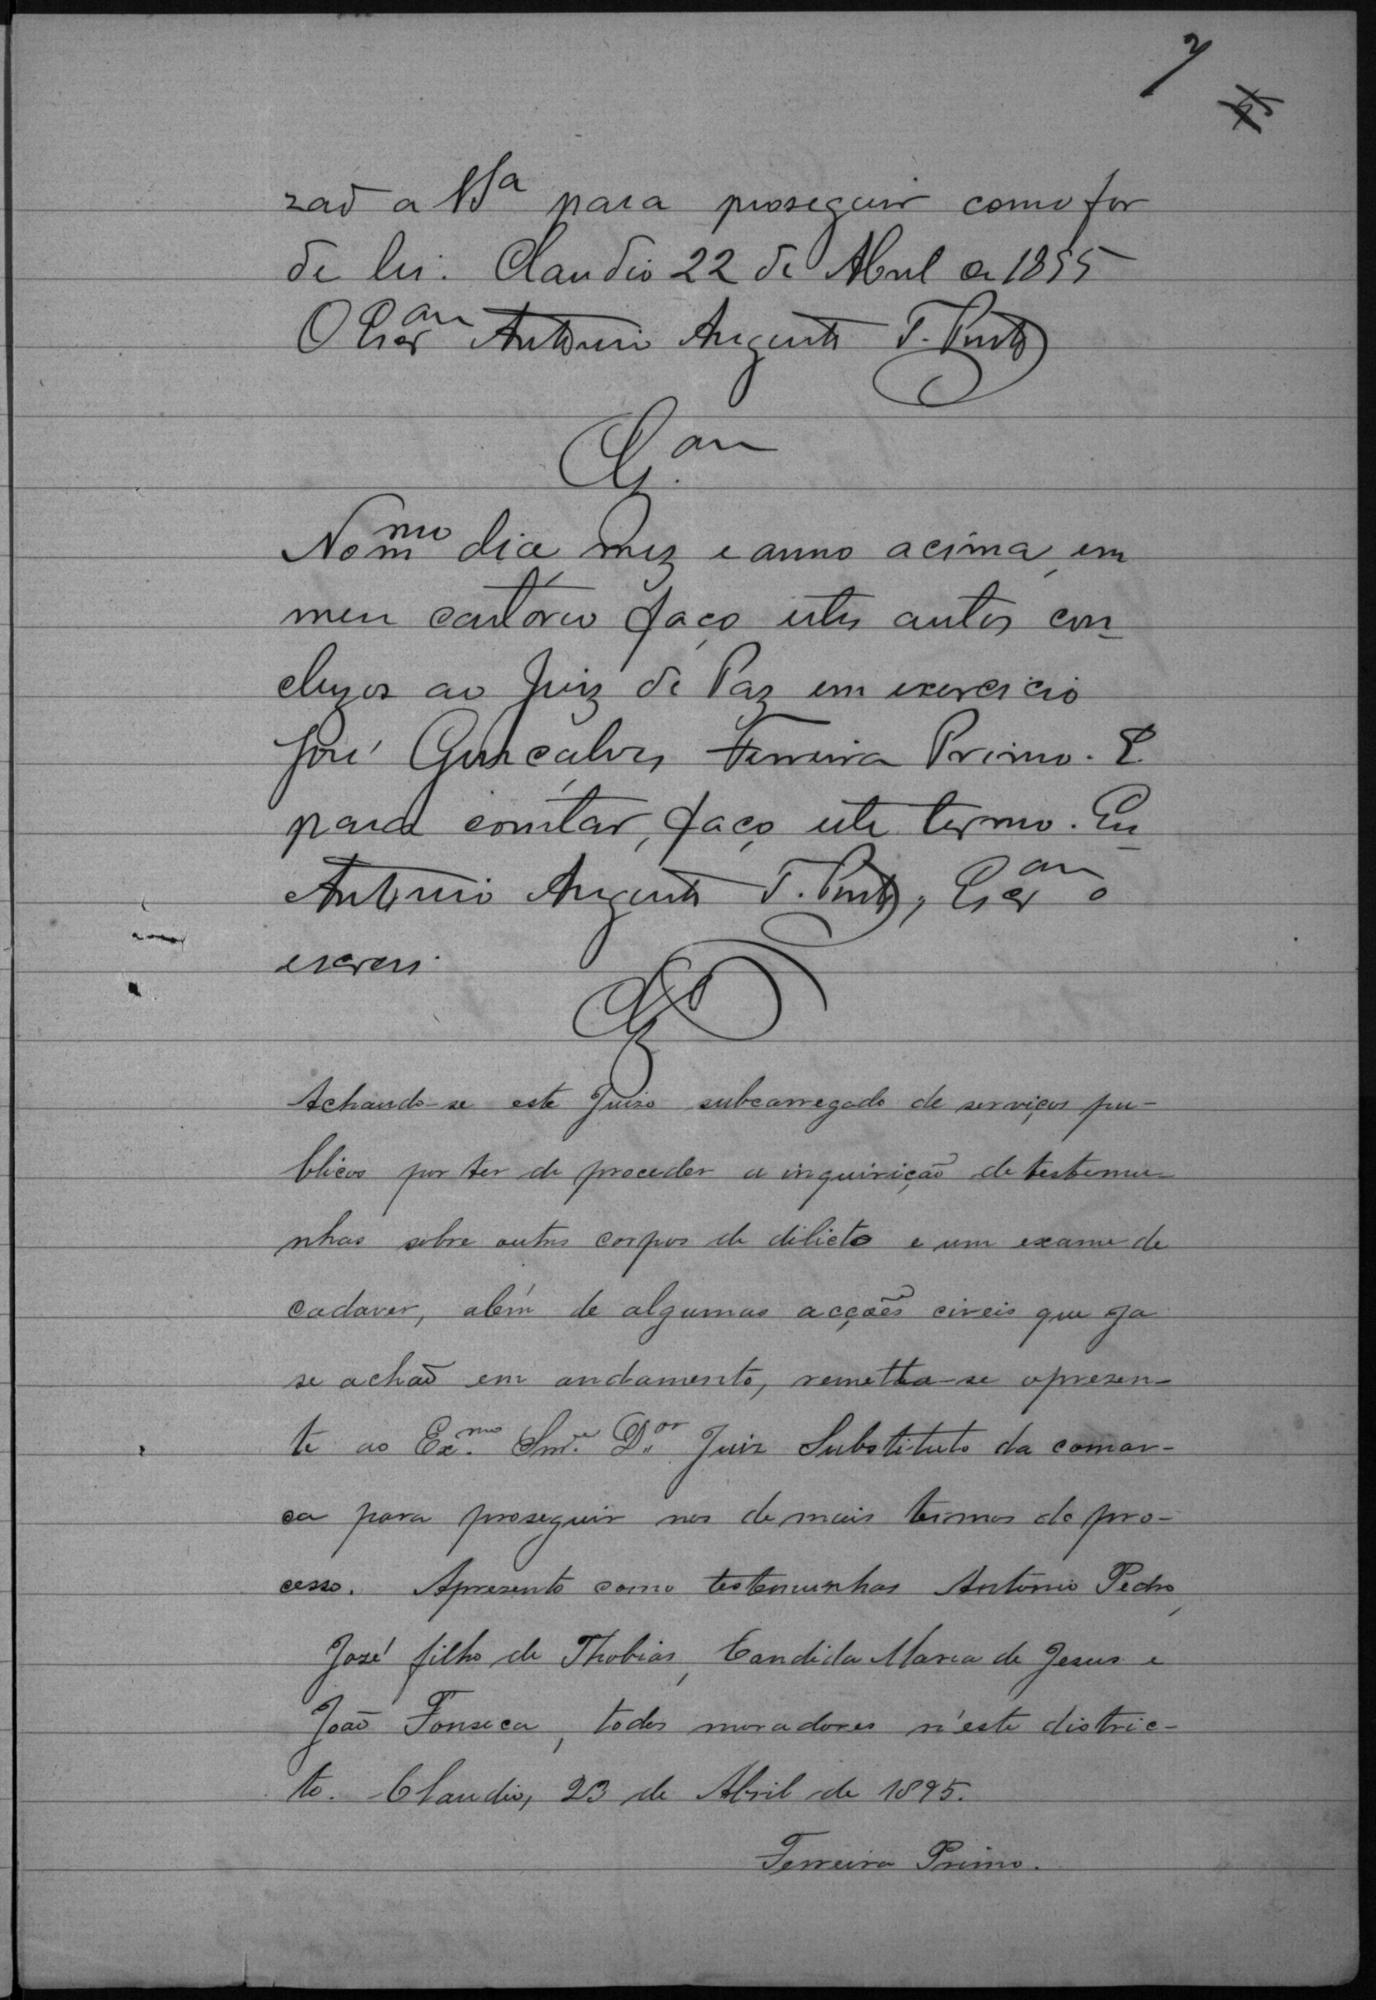 7
zaõ a Vª para proseguir como for
de lei. Claudio 22 de Abril de 1895
O Escram Antonio Augusto T. Pinto
Clzam
No mmo dia, mez e anno acima, em
meu cartorio faço estes autos con-
cluzos ao Juiz de Paz em exercicio
José Gonçalves Ferreira Primo. E
para constar, faço este termo. Eu
Antonio Augusto T. Pinto, Escram o
escrevi.
Achando-se este Juizo subcarregado de serviços pu-
blicos por ter de proceder a inquirição de testemu-
nhas sobre outros corpos de delicto e um exame de
cadaver, alem de algumas acções civeis que ja
se achaõ em andamento, remetta-se apresen-
te ao Ex.mo Snr. D.or Juiz Substituto da comar-
ca para proseguir nos demais termos do pro-
cesso. Apresento como testemunhas Antonio Pedro,
José filho de Thobias, Candida Maria de Jesus e
João Fonseca, todos moradores n'este distric-
to. Claudio, 23 de Abril de 1895.
Ferreira Primo.